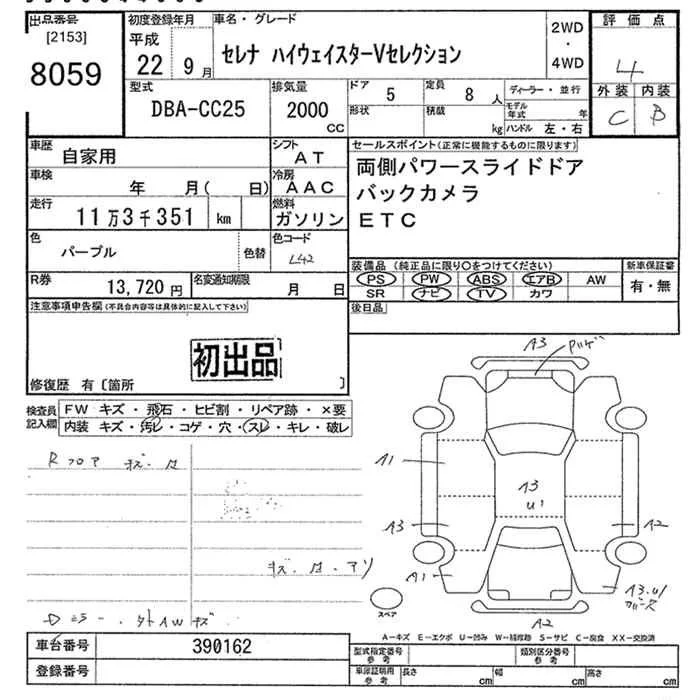 出品番号
[2153]
8059
初度登録年月
平成
22年9月
車名・グレード
セレナ ハイウェイスターVセレクション
2WD
・
4WD
評価点
4
外装 内装
C B
型式
DBA-CC25
排気量
2000
CC
ドア
5
定員
8人
形状
積載
kg
ディーラー・並行
モデル年式 年
ハンドル 左・右
車歴
自家用
シフト
AT
車検
年 月( 日)
冷房
AAC
走行
11万3千351 km
燃料
ガソリン
色
パープル
色替
色コード
L42
R券
13,720円
名変通知期限
月 日
セールスポイント(正常に機能するものに限ります)
両側パワースライドドア
バックカメラ
ETC
装備品 (純正品に限り○をつけてください)
PS PW ABS エアB AW
SR ナビ TV カワ
新車保証書
有・無
後日品
注意事項申告欄(不具合内容等は具体的に記入して下さい)
初出品
修復歴 有〔箇所 〕
検査員記入欄
FW キズ・飛石・ヒビ割・リペア跡・×要
内装 キズ・汚レ・コゲ・穴・スレ・キレ・破レ
Rフロア キズ・
キズ・
Dミラー・
A3
A1
A3
U1
A3
A2
A1
A3.U1
A2
スペア
A-キズ E-エクボ U-凹み W-補修跡 S-サビ C-腐食 XX-交換済
車台番号
390162
登録番号
型式指定番号
参考
類別区分番号
参考
車庫証明用
参考
長さ cm 幅 cm 高さ cm